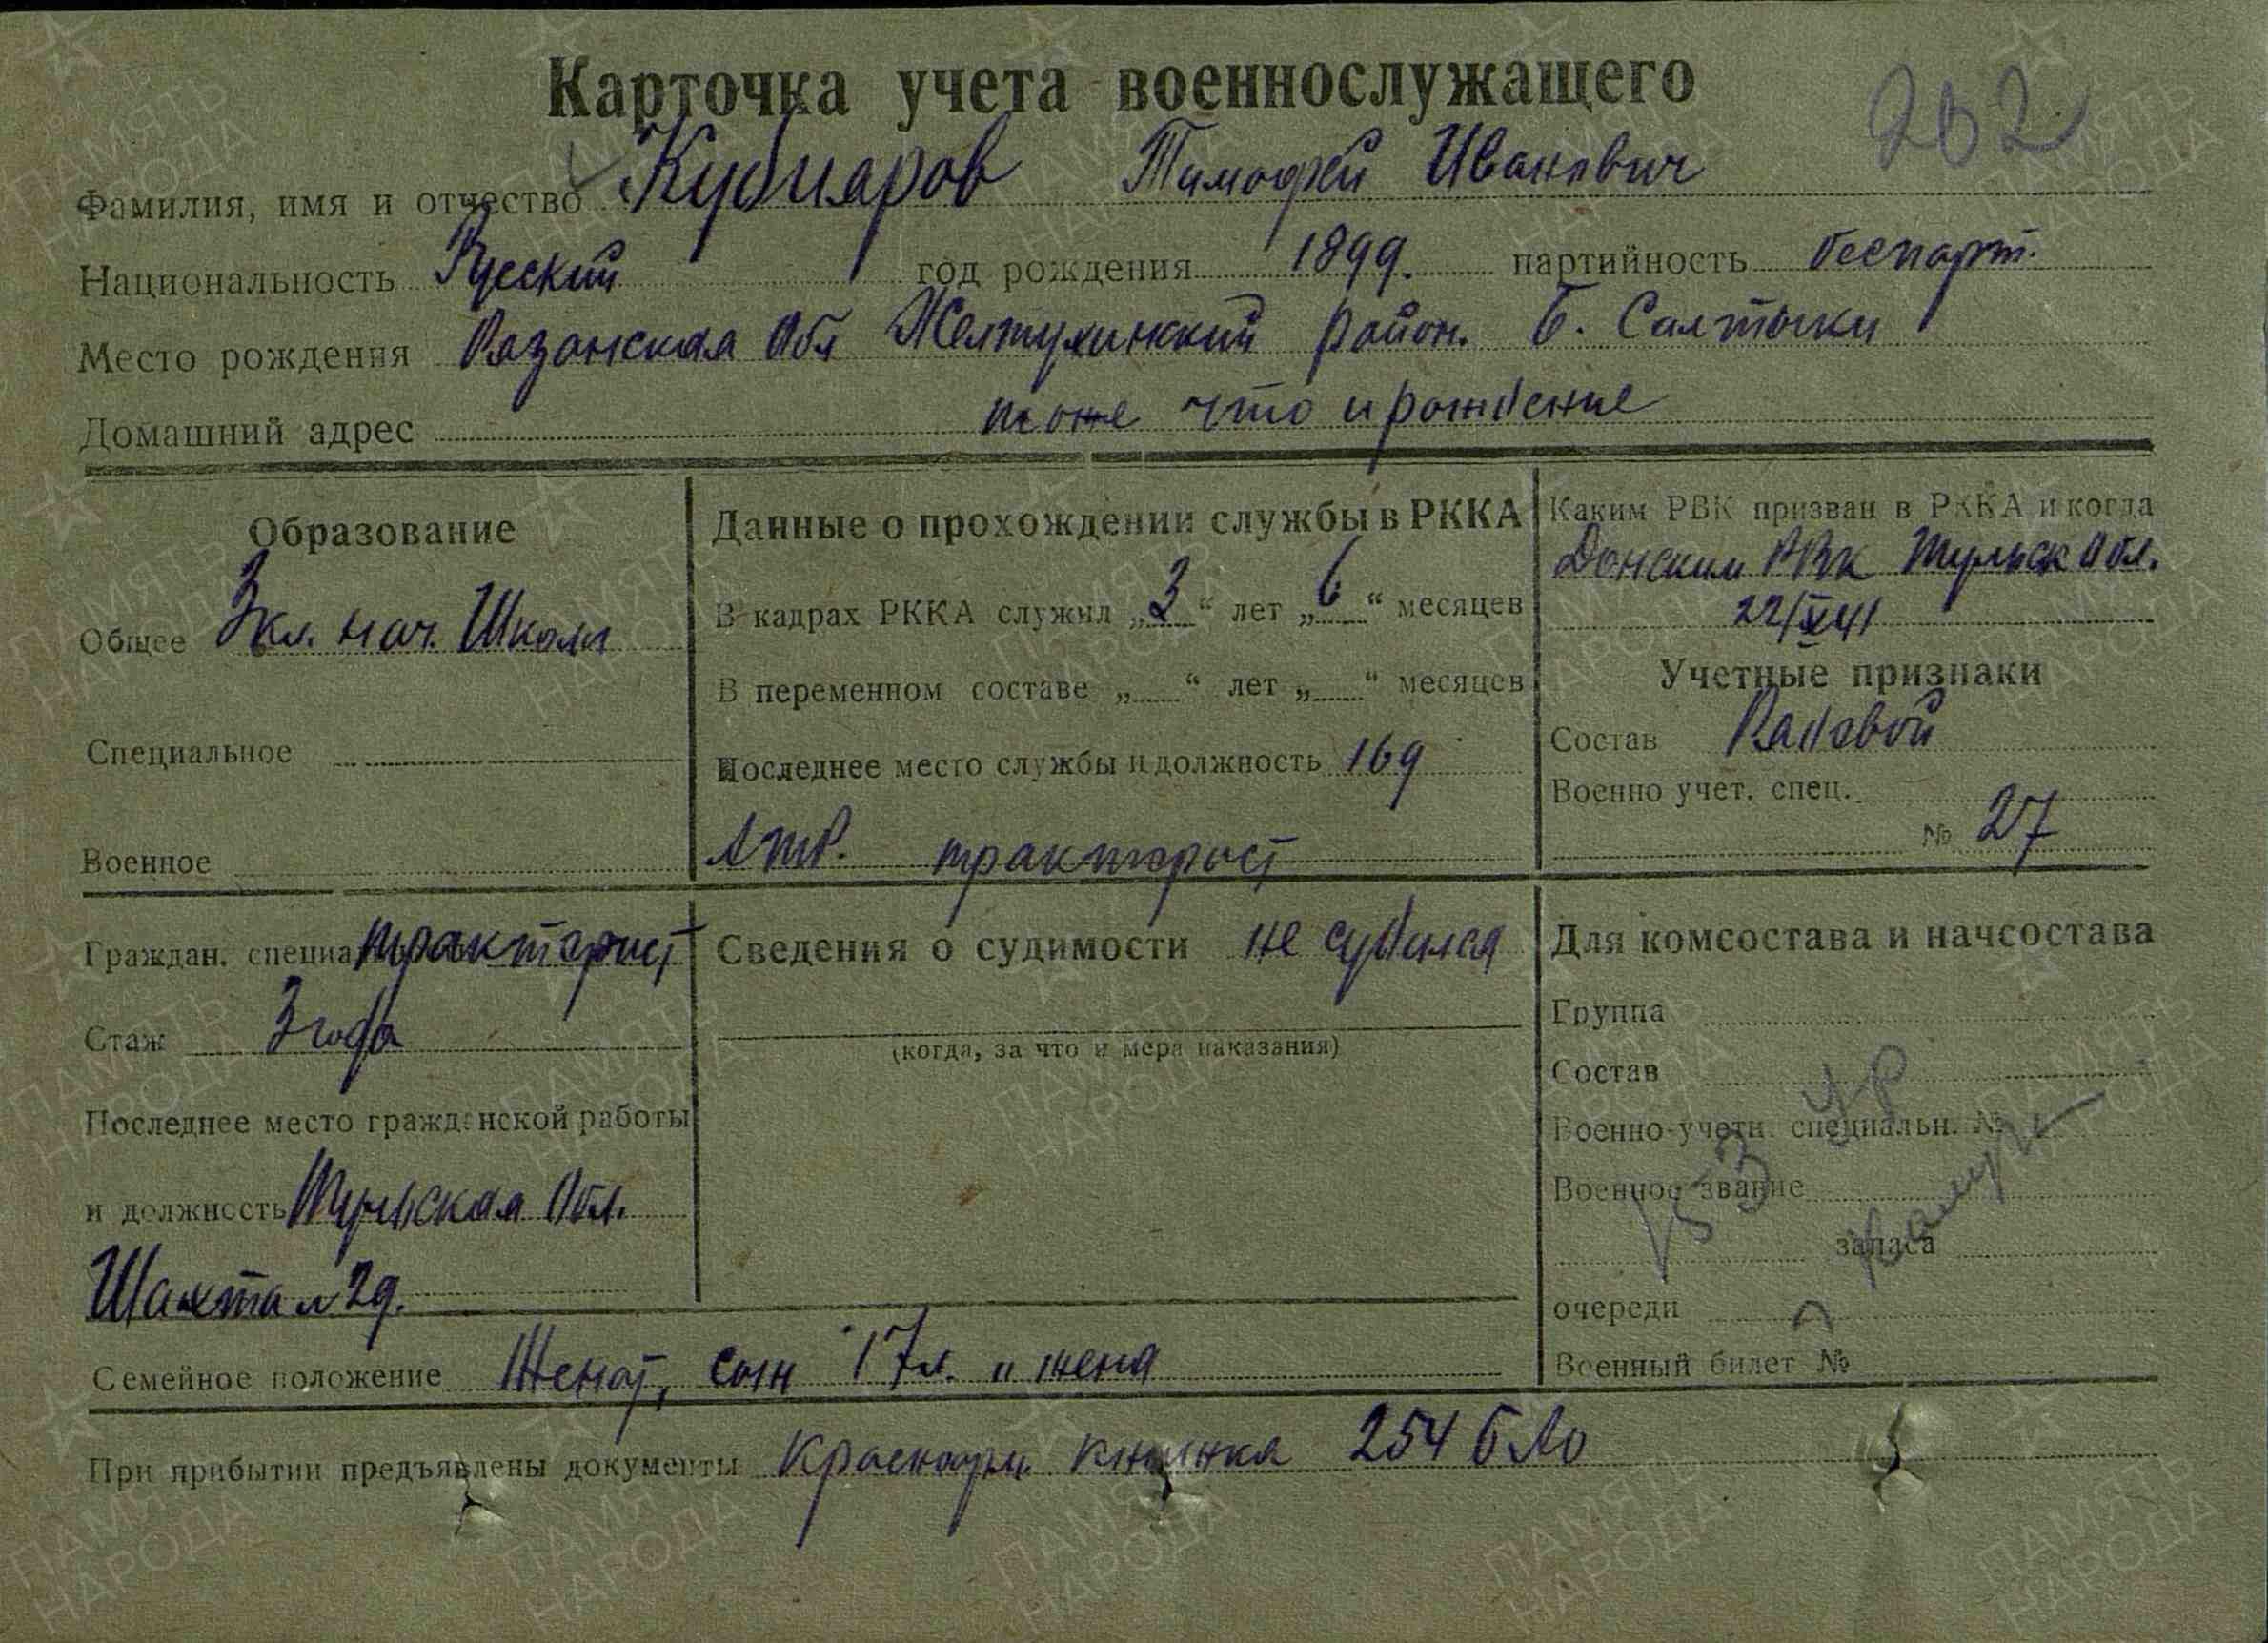 Карточка учета военнослужащего
202
Фамилия, имя и отчество Кудияров Тимофей Иванович
Национальность Русский год рождения 1899. партийность беспарт.
Место рождения Рязанская Обл Желтухинский район. Б. Салтыки
Домашний адрес тоже что и рождение
Образование
Общее 3 кл. нач. Школы
Специальное
Военное
Данные о прохождении службы в РККА
В кадрах РККА служил „3“ лет „6“ месяцев
В переменном составе „ “ лет „ “ месяцев
Последнее место службы и должность 169
тракторист
Каким РВК призван в РККА и когда
Донским РВК Тульск Обл.
Учетные признаки
Состав Рядовой
Военно учет. спец.
№ 27
Граждан. специа тракторист
Стаж 3 года
Последнее место гражданской работы
и должность Тульская Обл.
Шахта № 29.
Сведения о судимости не судился
(когда, за что и мера наказания)
Для комсостава и начсостава
Группа
Состав
Военно-учетн. специальн. №
Военное звание
запаса
очереди
Военный билет №
Семейное положение Женат, сын 17 л. и жена
При прибытии предъявлены документы Красноарм. книжка 254